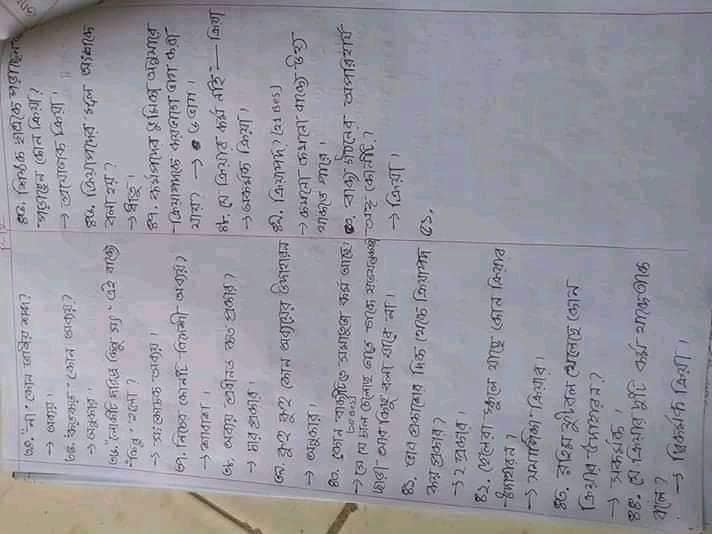 ৩৪. "না" কোন জাতীয় শব্দ?
→ অব্যয়।
৩৫. কতকত কোন অব্যয়?
→ অনুকার।
৩৬. "লোকটি দরিদ্র কিন্তু সৎ" এই বাক্যে
"কিন্তু" হলো?
→ সংকোচক অব্যয়।
৩৭. নিচের কোনটি বিদেশী অব্যয়?
→ শাবাশ।
৩৮. অব্যয় প্রধানত কত প্রকার?
→ চার প্রকার।
৩৯. কুহু কুহু কোন অব্যয়ের উদাহারন
→ অনুকার।
৪০. কোন বাক্যটিতে সমধাতুজ কর্ম আছে?
→ সে যে চাল চেলেছে তাতে তাকে
ছাড়া আর কিছু বলা যাবে না।
৪১. ভাব প্রকাশের দিক থেকে ক্রিয়াপদ
কয় প্রকার?
→ ২ প্রকার।
৪২. ছেলেরা স্কুলে যাচ্ছে কোন ক্রিয়ার
উদাহারন?
→ সমাপিকা ক্রিয়ার।
৪৩. রহিম ফুটবল খেলেছে কোন
ক্রিয়ার উদাহারন?
→ সকর্মক।
৪৪. যে ক্রিয়ার দুটি কর্ম থাকে তাকে
বলে?
→ দ্বিকর্মক ক্রিয়া।
৪৫. শিক্ষক ছাত্রকে পড়াচ্ছেন
পড়াচ্ছেন কোন ক্রিয়া?
→ প্রযোজক ক্রিয়া।
৪৬. ক্রিয়াপদের মূল অংশকে
বলা হয়?
→ ধাতু।
৪৭. কর্মপদের ভূমিকা অনুসারে
ক্রিয়াপদকে কয়ভাগে ভাগ করা
যায়? → ৬ ভাগ।
৪৮. যে ক্রিয়ার কর্ম নাই — ক্রিয়া
→ অকর্মক ক্রিয়া।
৪৯. ক্রিয়াপদ? (21 BCS)
→ কখনো কখনো বাক্যে উহ্য
থাকতে পারে।
৫০. বাক্য গঠনের অপরিহার্য
অঙ্গ কোনটি?
→ ক্রিয়া।
৫১.